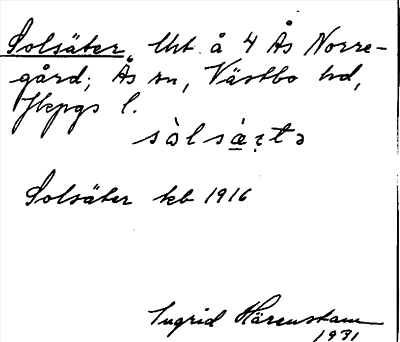 Solsäter, Uht å 4 Ås Norre-
gård; Ås sn, Västbo hd,
Jkpgs l.
sòlsæ̀tə
Solsäter kb 1916
Ingrid Härenstam
1931